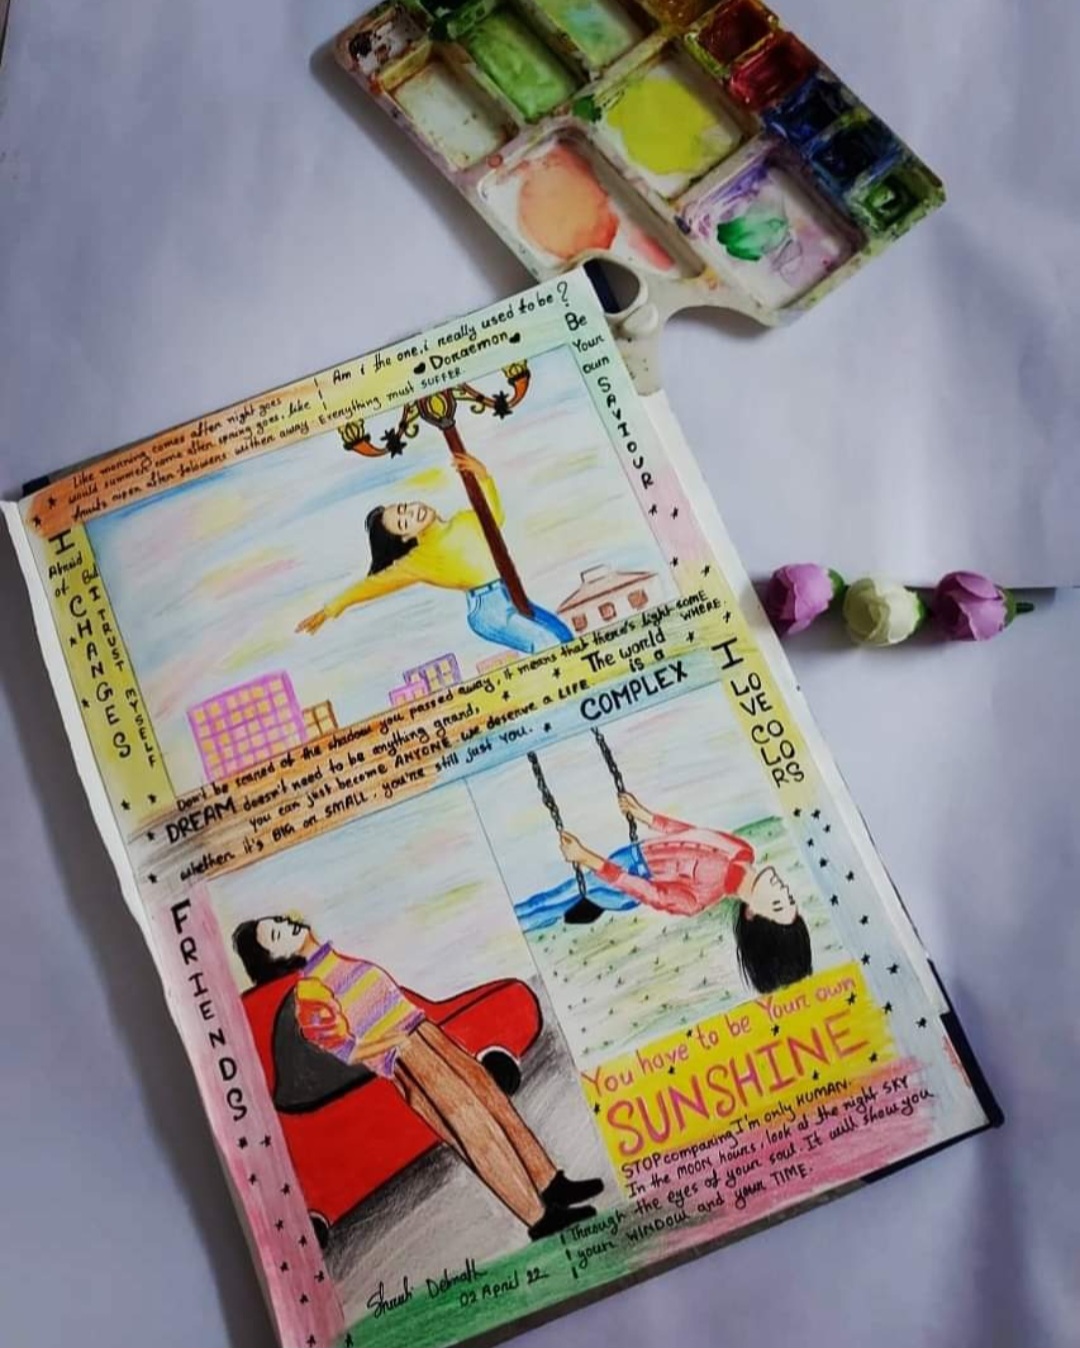 Like morning comes after night goes
would summer come after spring goes, like
fruits ripen after followers wither away Everything must SUFFER.
Am i the one, i really used to be?
Doraemon
Be
Your
own
SAVIOUR
I
Afraid
of
CHANGES
But
I TRUST MYSELF
Don't be scared of the shadow you passed away, it means that there's light SOME
WHERE.
DREAM doesn't need to be anything grand,
You can just become ANYONE. We deserve a LIFE
whether it's BIG or SMALL, you're still just you.
The world
is a
COMPLEX
I
LO
VE
CO
LO
RS
FRIENDS
You have to be Your own
SUNSHINE
STOP comparing I'm only HUMAN.
In the moon hours, look at the night SKY
Through the eyes of your soul. It will show you
your WINDOW and your TIME.
Debnath
02 April 22